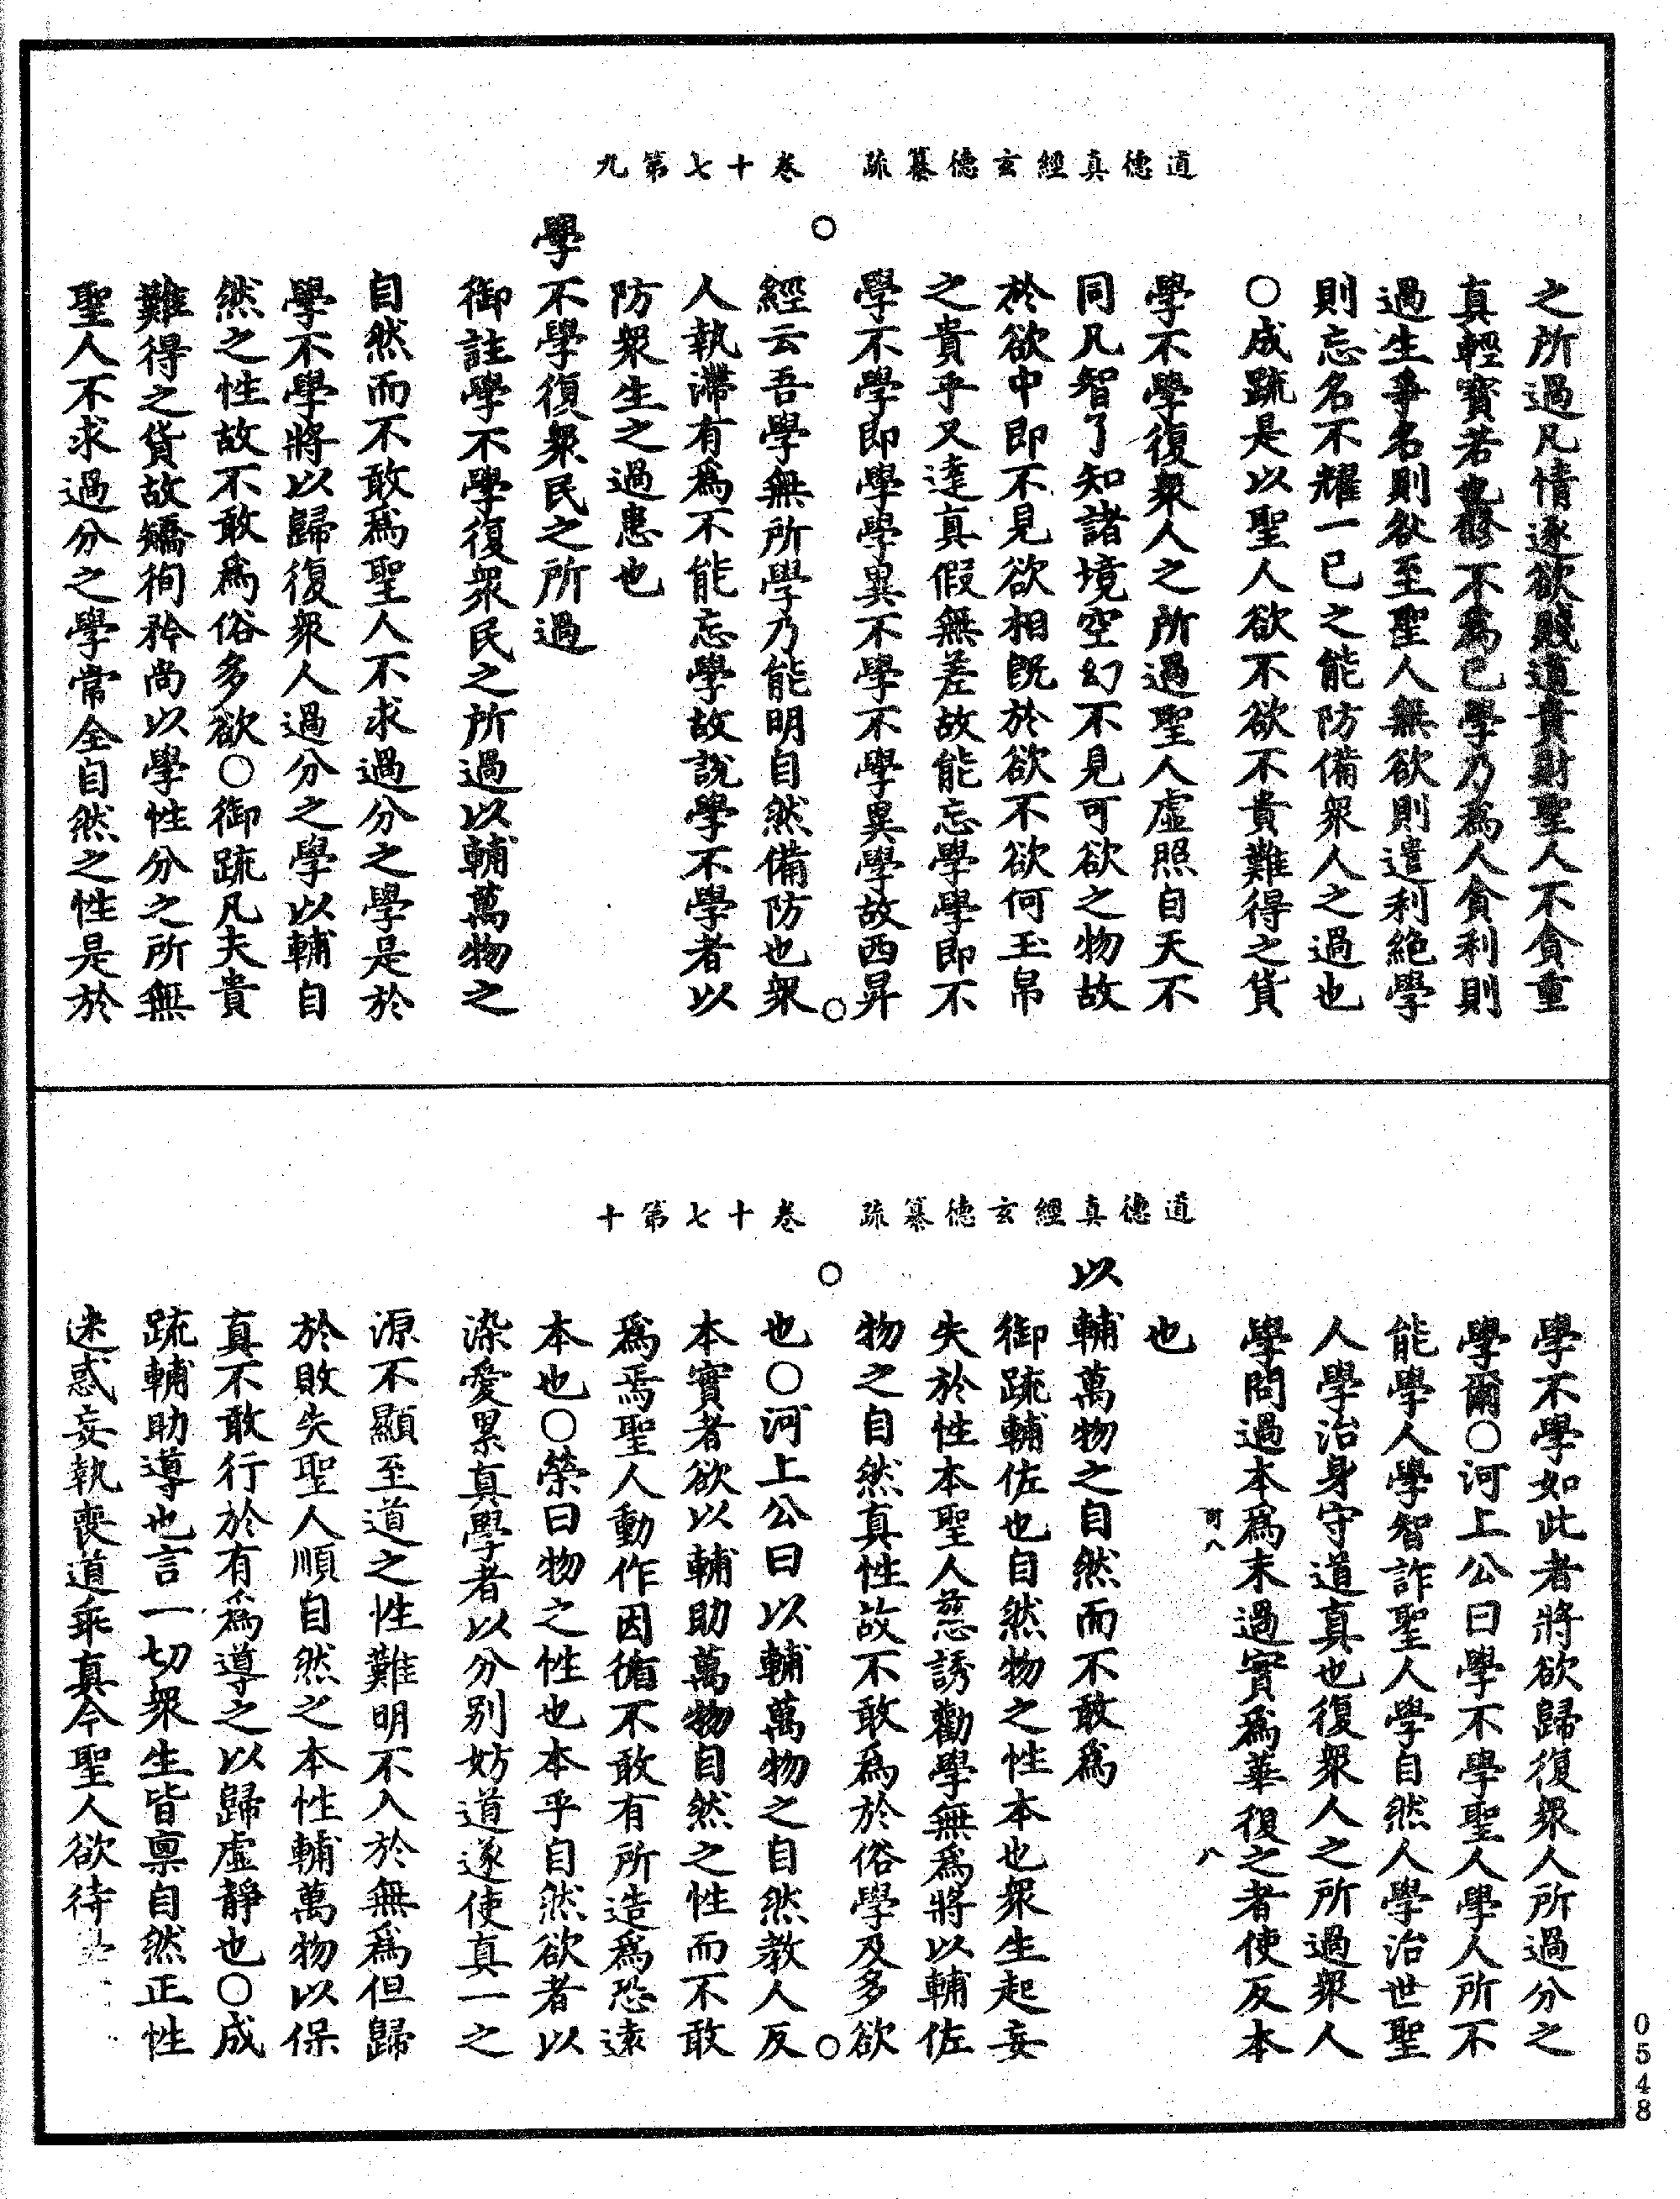 道德真經玄德纂疏　卷十七第九
之所過凡情逐欲賤道貴財聖人不貪重
真輕寶若也修不為己學乃為人貪利則
過生爭名則咎至聖人無欲則遣利絕學
則忘名不耀一己之能防備眾人之過也
○成疏是以聖人欲不欲不貴難得之貨
學不學復眾人之所過聖人虛照自天不
同凡智了知諸境空幻不見可欲之物故
於欲中即不見欲相既於欲不欲何玉帛
之貴乎又達真假無差故能忘學學即不
學不學即學學異不學不學異學故西昇
經云吾學無所學乃能明自然備防也眾
人執滯有為不能忘學故說學不學者以
防眾生之過患也
學不學復眾民之所過
御註學不學復眾民之所過以輔萬物之
自然而不敢為聖人不求過分之學是於
學不學將以歸復眾人過分之學以輔自
然之性故不敢為俗多欲○御疏凡夫貴
難得之貨故矯徇矜尚以學性分之所無
聖人不求過分之學常全自然之性是於
道德真經玄德纂疏　卷十七第十
學不學如此者將欲歸復眾人所過分之
學爾○河上公曰學不學聖人學人所不
能學人學智詐聖人學自然人學治世聖
人學治身守道真也復眾人之所過眾人
學問過本為末過實為華復之者使反本
也
以輔萬物之自然而不敢為
御疏輔佐也自然物之性本也眾生起妄
失於性本聖人慈誘勸學無為將以輔佐
物之自然真性故不敢為於俗學及多欲
也○河上公曰以輔萬物之自然教人反
本實者欲以輔助萬物自然之性而不敢
為焉聖人動作因循不敢有所造為恐遠
本也○榮曰物之性也本乎自然欲者以
染愛累真學者以分別妨道遂使真一之
源不顯至道之性難明不入於無為但歸
於敗失聖人順自然之本性輔萬物以保
真不敢行於有為導之以歸虛靜也○成
疏輔助導也言一切眾生皆禀自然正性
迷惑妄執喪道乖真今聖人欲待
可八
八
0548